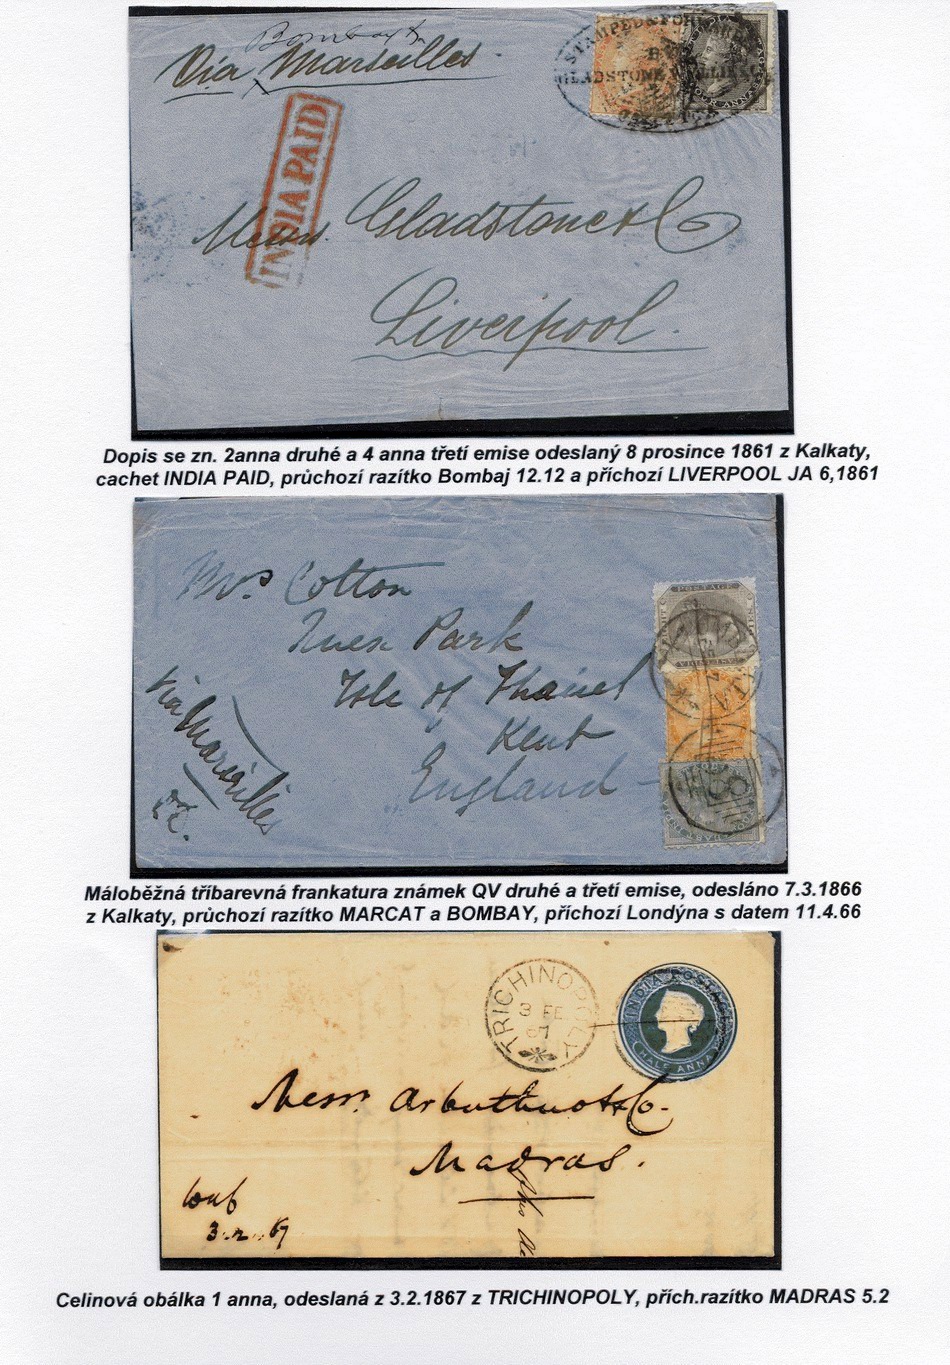 Bombay &
Via Marseilles
STAMPED & FOR
BY
GLADSTONE WYLLIE & CO
FOUR ANNAS
INDIA PAID
Messrs. Gladstone & Co
Liverpool.
Dopis se zn. 2anna druhé a 4 anna třetí emise odeslaný 8 prosince 1861 z Kalkaty,
cachet INDIA PAID, průchozí razítko Bombaj 12.12 a příchozí LIVERPOOL JA 6,1861
Mrs Cotton
Park
Isle of Thanet
Kent
England
via Marseilles
POSTAGE
Máloběžná tříbarevná frankatura známek QV druhé a třetí emise, odesláno 7.3.1866
z Kalkaty, průchozí razítko MARCAT a BOMBAY, příchozí Londýna s datem 11.4.66
TRICHINOPOLY
3 FE
67
INDIA POSTAGE
HALF ANNA
Messrs. Arbuthnot & Co.
Madras.
3.2.67
Celinová obálka 1 anna, odeslaná z 3.2.1867 z TRICHINOPOLY, přích.razítko MADRAS 5.2